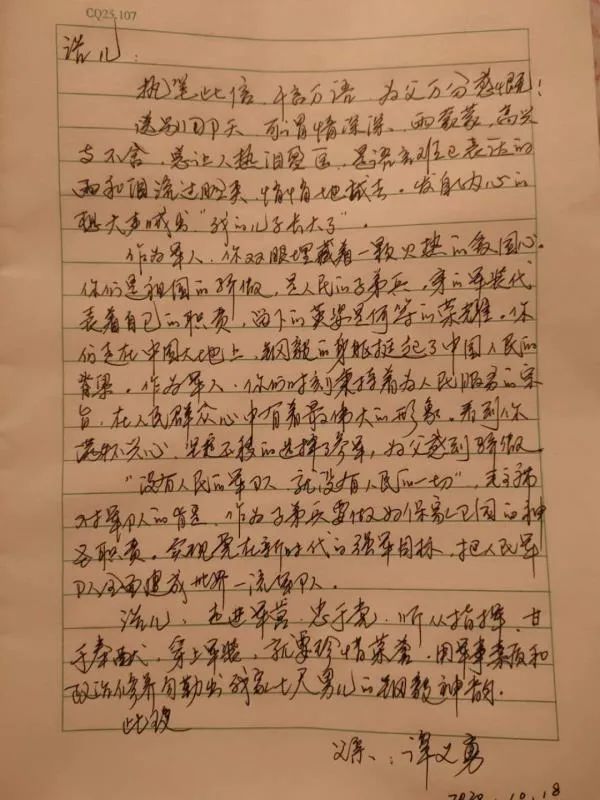 CQ25.107
浩儿:
执笔此信,千言万语,为父万分感慨!
送别那天,可谓情深深、雨蒙蒙,高兴
与不舍,总让人热泪盈眶,是语言难已表达的
雨和泪流过脸颊,悄悄地拭去。发自内心的
想大声喊出“我的儿子长大了”。
作为军人,你双眼埋藏着一颗火热的爱国心。
你们是祖国的骄傲,是人民的子弟兵,穿的军装代
表着自己的职责,留下的英姿是何等的荣耀。你
们走在中国大地上,钢毅的身躯挺起了中国人民的
脊梁。作为军人,你们时刻秉持着为人民服务的宗
旨,在人民群众心中有着最伟大的形象。看到你
坚定不移的选择了参军,为父感到骄傲。
“没有人民的军队,就没有人民的一切”,毛主席
对军队的肯定,作为子弟兵要做好保家卫国的神
圣职责。实现党在新时代的强军目标,把人民军
队全面建成世界一流军队。
浩儿,走进军营,忠于党,听从指挥,甘
于奉献,穿上军装,就要珍惜荣誉,用军事素质和
政治修养勾勒出我家七尺男儿的钢毅神韵。
此致
父亲:谭义勇
2020.10.18